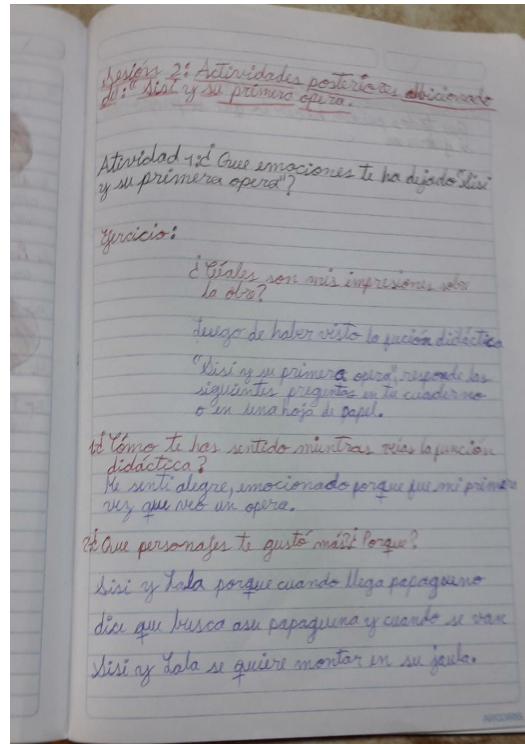 Sesión 2: Actividades posteriores al
de: "Sisi y su primera opera".
Atividad 1: ¿Que emociones te ha dejado "Sisi
y su primera opera"?
Ejercicio:
¿Cúales son mis impresiones sobre
la obre?
Luego de haber visto la fución didáctica
"Sisi y su primera opera", responde las
siguientes preguntas en tu cuaderno
o en una hoja de papel.
1¿Cómo te has sentido mientras veías la función
didáctica?
Me senti alegre, emocionado porque fue mi primera
vez que veo un opera.
2¿Que personajes te gustó más?¿Porque?
Sisi y Lala porque cuando llega papagueno
dice que busca asu papaguena y cuando se van
Sisi y Lala se quiere montar en su jaula.